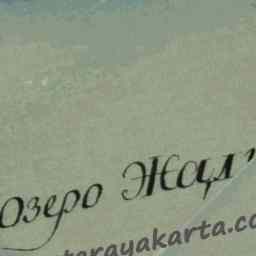 Озеро Жал
starayakarta.co